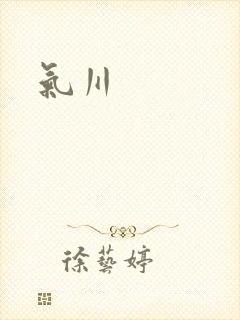 氣川
徐藝婷